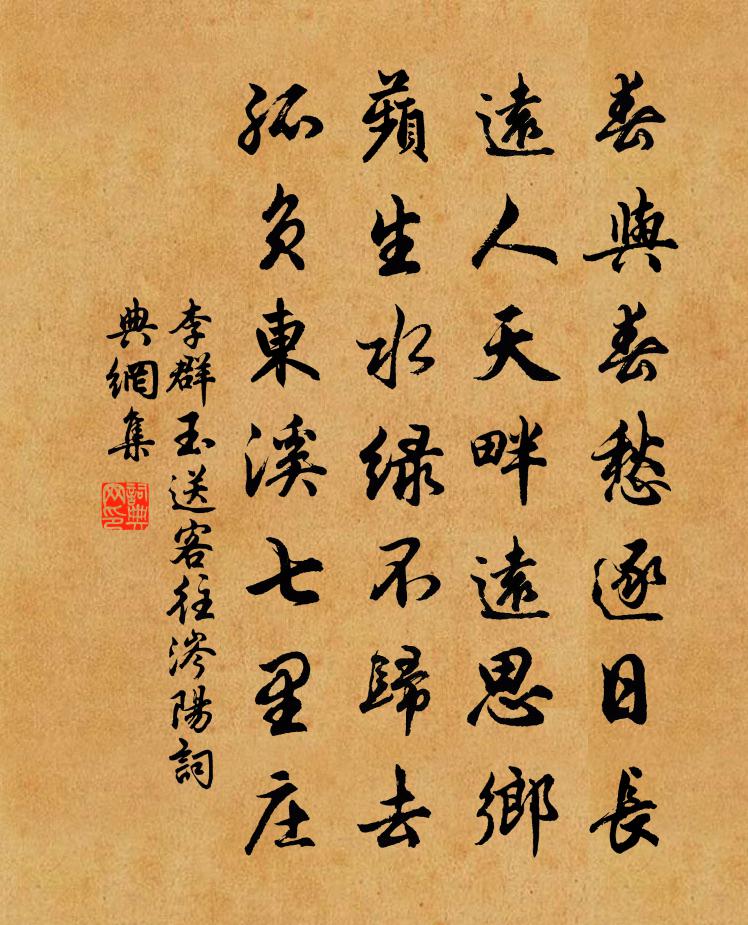 春與春愁逐日長
遠人天畔遠思鄉
蘋生水緑不歸去
孤負東溪七里庄
李群玉送客往涔陽詞
典網集
詞典